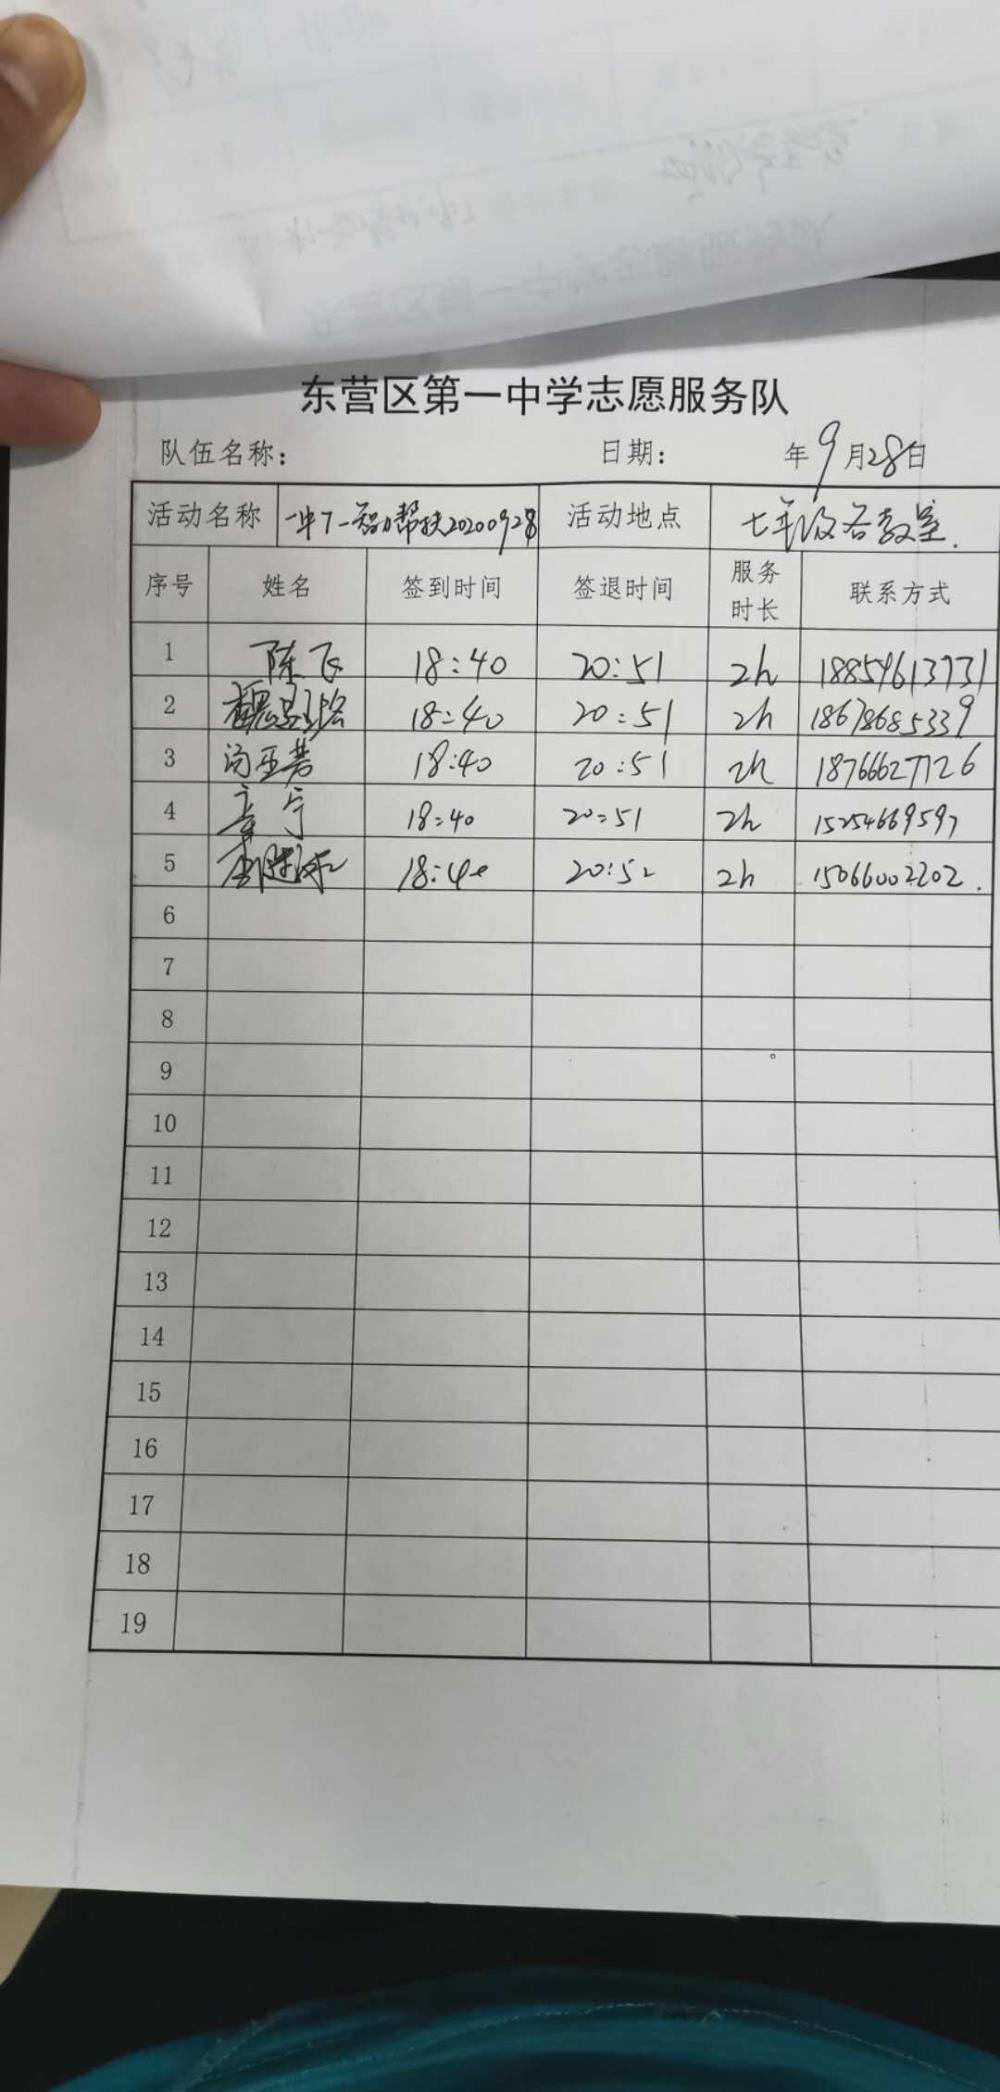 东营区第一中学志愿服务队
队伍名称： 日期： 年9月28日
活动名称 一中丁一智力帮扶20200928 活动地点 七年级各教室.
序号 姓名 签到时间 签退时间 服务时长 联系方式
1 陈飞 18:40 20:51 2h 18854613731
2 18:40 20:51 2h 18678685339
3 18:40 20:51 2h 18766627126
4 章宁 18:40 20:51 2h 15254669597
5 18:40 20:52 2h 15066002202.
6
7
8
9
10
11
12
13
14
15
16
17
18
19